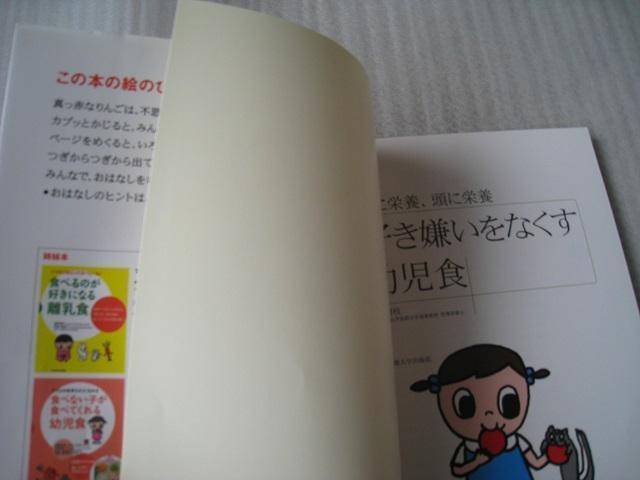 この本の絵のひ
真っ赤なりんごは、不思
カブッとかじると、みん
ページをめくると、いろ
つぎからつぎから出て
みんなで、おはなしを
●おはなしのヒントは
姉妹本
食べるのが
好きになる
離乳食
食べない子が
食べてくれる
幼児食
に栄養、頭に栄養
好き嫌いをなくす
幼児食